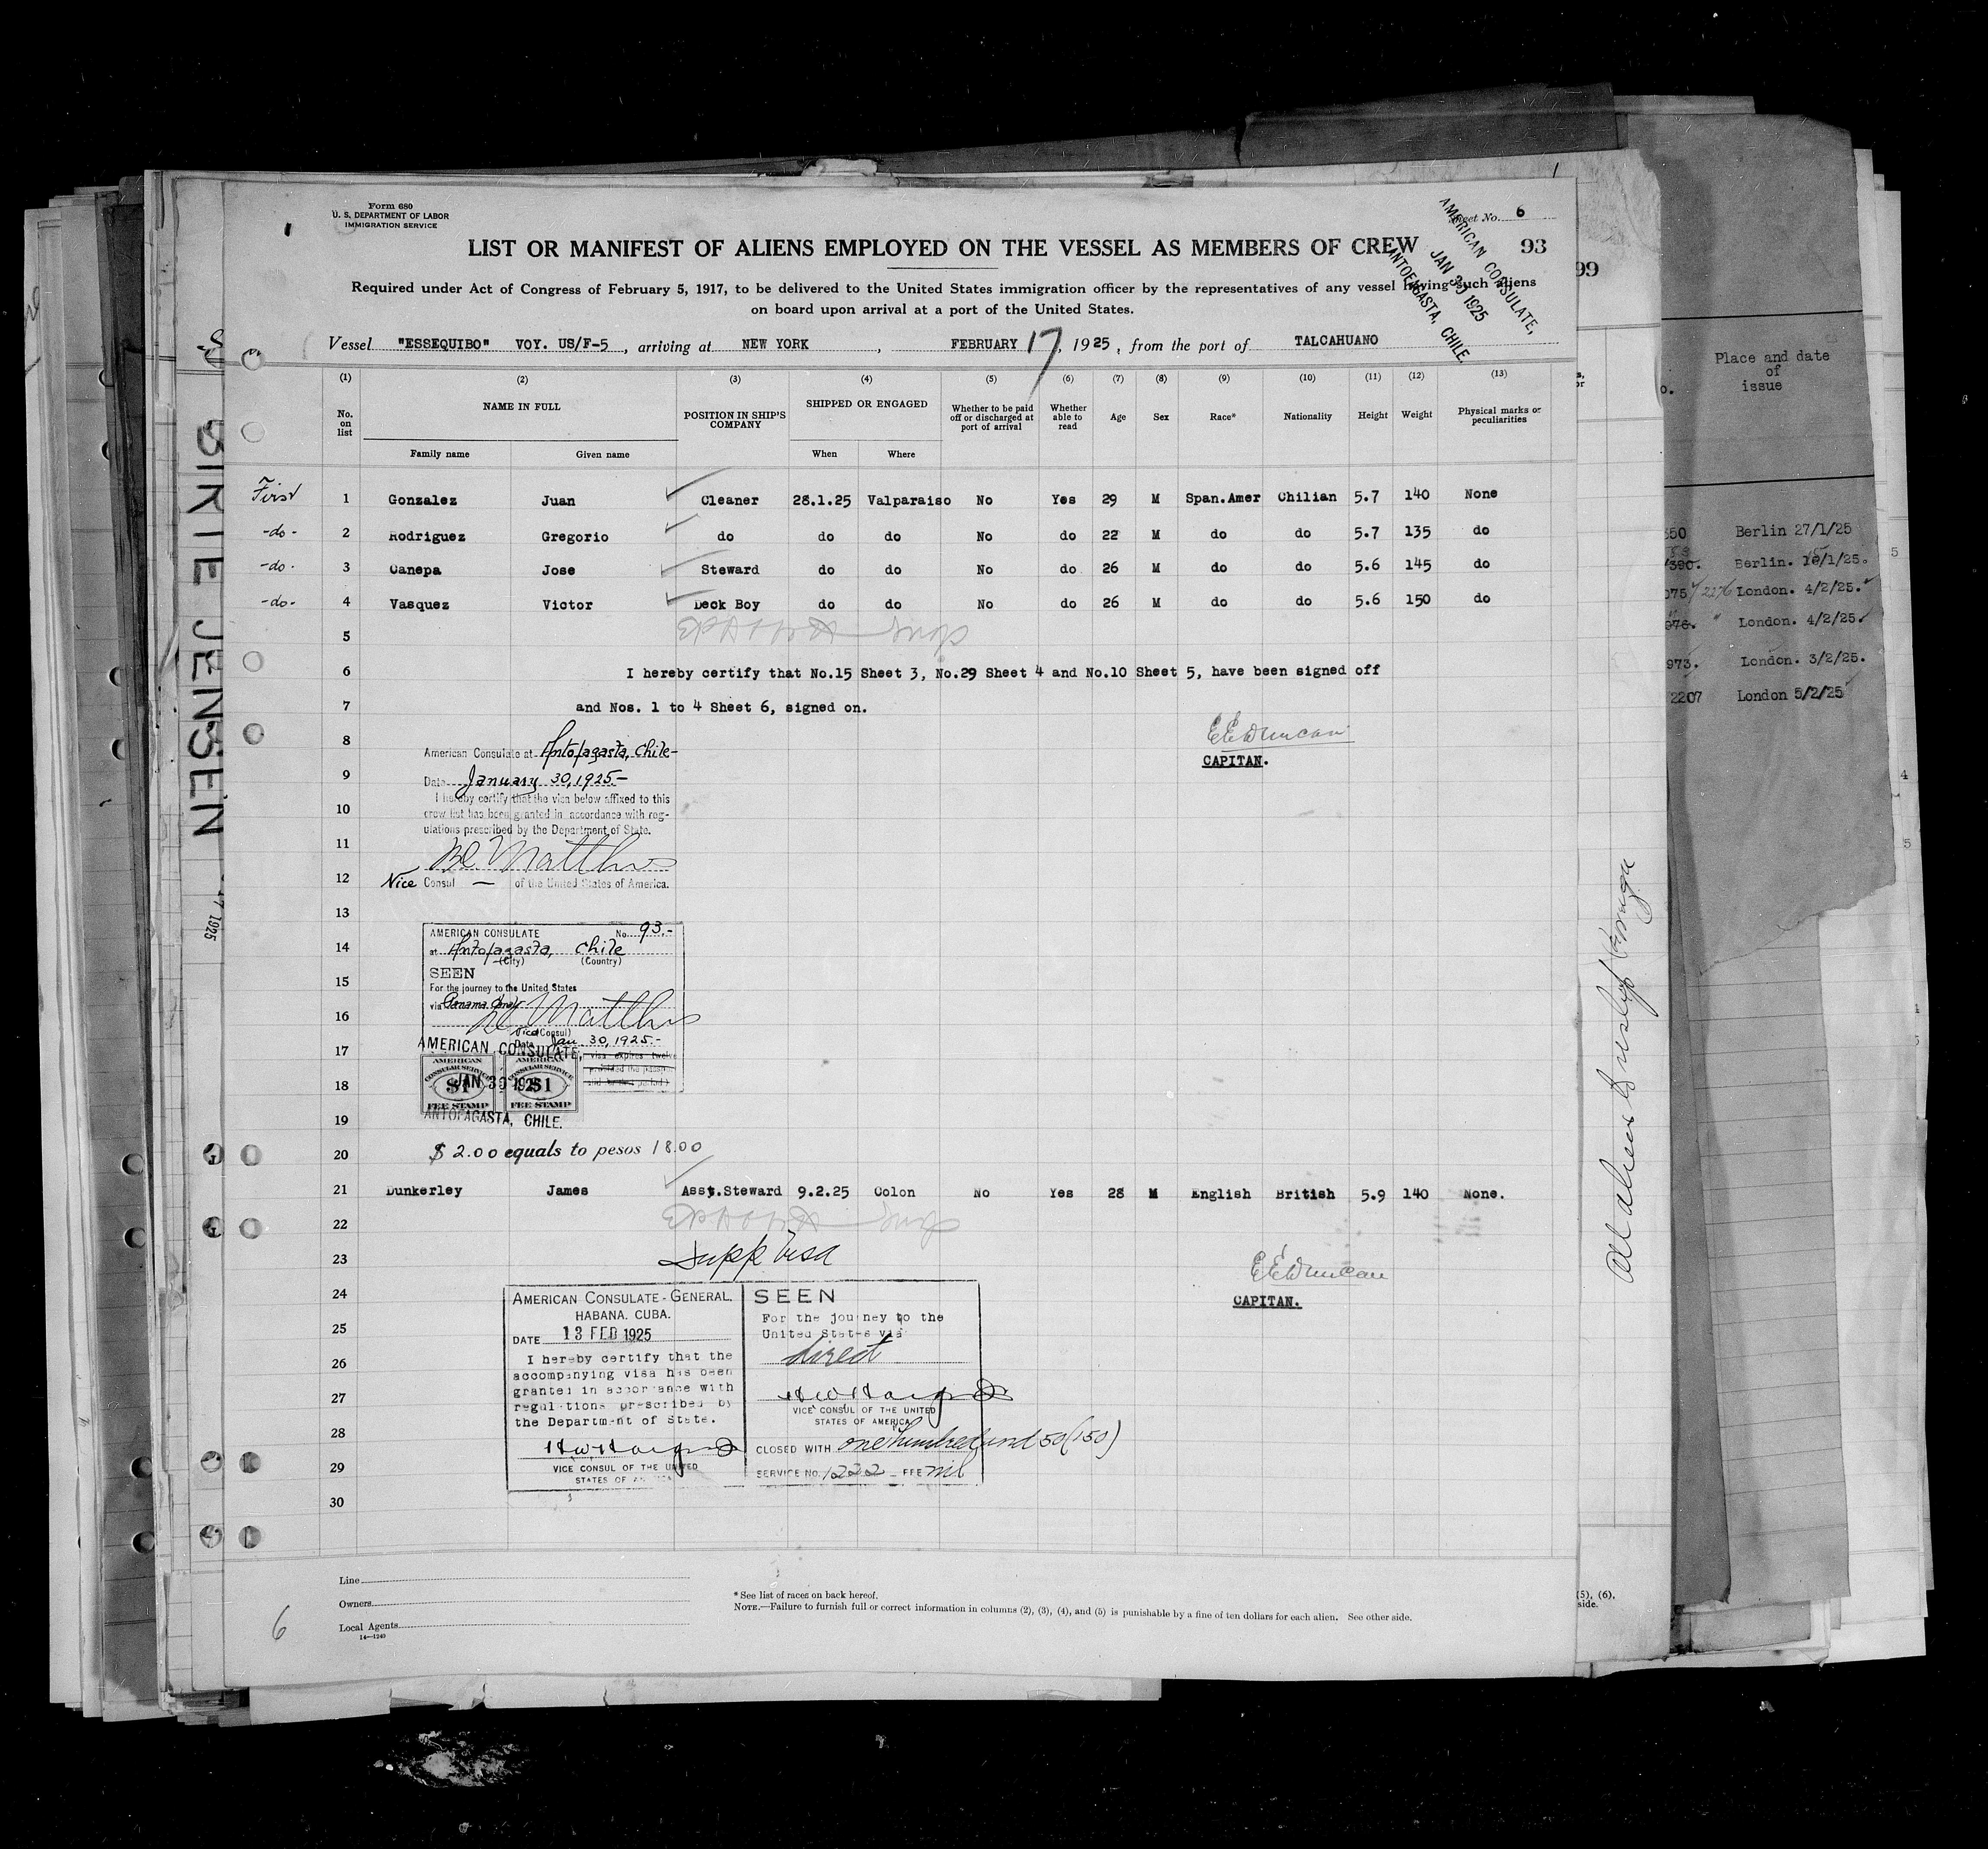 Form 680
U. S. DEPARTMENT OF LABOR
IMMIGRATION SERVICE
Sheet No. 6
LIST OR MANIFEST OF ALIENS EMPLOYED ON THE VESSEL AS MEMBERS OF CREW
93
99
AMERICAN CONSULATE,
JAN 30 1925
ANTOFAGASTA, CHILE
Required under Act of Congress of February 5, 1917, to be delivered to the United States immigration officer by the representatives of any vessel having such aliens
on board upon arrival at a port of the United States.
Vessel "ESSEQUIBO" VOY. US/F-5, arriving at NEW YORK, FEBRUARY 17, 1925, from the port of TALCAHUANO
(1) (2) (3) (4) (5) (6) (7) (8) (9) (10) (11) (12) (13)
No. on list NAME IN FULL POSITION IN SHIP'S COMPANY SHIPPED OR ENGAGED Whether to be paid off or discharged at port of arrival Whether able to read Age Sex Race* Nationality Height Weight Physical marks or peculiarities
Family name Given name When Where
First 1 Gonzalez Juan Cleaner 28.1.25 Valparaiso No Yes 29 M Span.Amer Chilian 5.7 140 None
-do- 2 Rodriguez Gregorio do do do No do 22 M do do 5.7 135 do
-do- 3 Canepa Jose Steward do do No do 26 M do do 5.6 145 do
-do- 4 Vasquez Victor Deck Boy do do No do 26 M do do 5.6 150 do
5
6 I hereby certify that No.15 Sheet 3, No.29 Sheet 4 and No.10 Sheet 5, have been signed off
7 and Nos. 1 to 4 Sheet 6, signed on.
8
E E Duncan
CAPITAN.
American Consulate at Antofagasta, Chile-
9
Date January 30, 1925.-
I hereby certify that the visa below affixed to this
10
crew list has been granted in accordance with reg-
ulations prescribed by the Department of State.
11
Matthews
12
Vice Consul — of the United States of America.
13
AMERICAN CONSULATE No. 93.-
14
at Antofagasta, Chile
(City) (Country)
15
SEEN
For the journey to the United States
16
via Panama Canal
Matthews
(Vice Consul)
17
Date Jan 30, 1925.-
AMERICAN CONSULATE,
visa expires twelve
provided the passport
AMERICAN CONSULAR SERVICE $1 FEE STAMP
AMERICAN CONSULAR SERVICE $1 FEE STAMP
18
JAN 30 1925
19
ANTOFAGASTA, CHILE.
20 $ 2.00 equals to pesos 18.00
21 Dunkerley James Asst.Steward 9.2.25 Colon No Yes 28 M English British 5.9 140 None.
22
23 Supp Visa
E E Duncan
CAPITAN.
24
AMERICAN CONSULATE-GENERAL.
HABANA. CUBA.
25
DATE 13 FEB 1925
26
I hereby certify that the
accompanying visa has been
27
granted in accordance with
regulations prescribed by
28
the Department of State.
29
VICE CONSUL OF THE UNITED
STATES OF AMERICA
30
SEEN
For the journey to the
United States via
direct
VICE CONSUL OF THE UNITED
STATES OF AMERICA
CLOSED WITH one hundred and 50 (150)
SERVICE NO. 1232 FEE nil
Line
Owners
Local Agents
14—1240
*See list of races on back hereof.
NOTE.—Failure to furnish full or correct information in columns (2), (3), (4), and (5) is punishable by a fine of ten dollars for each alien. See other side.
6
BIRTE JENSEN
7 1925
Place and date
of
issue
Berlin 27/1/25
Berlin.
London. 4/2/25.
" London. 4/2/25.
973. London. 3/2/25.
2207 London 5/2/25
(5), (6),
side.